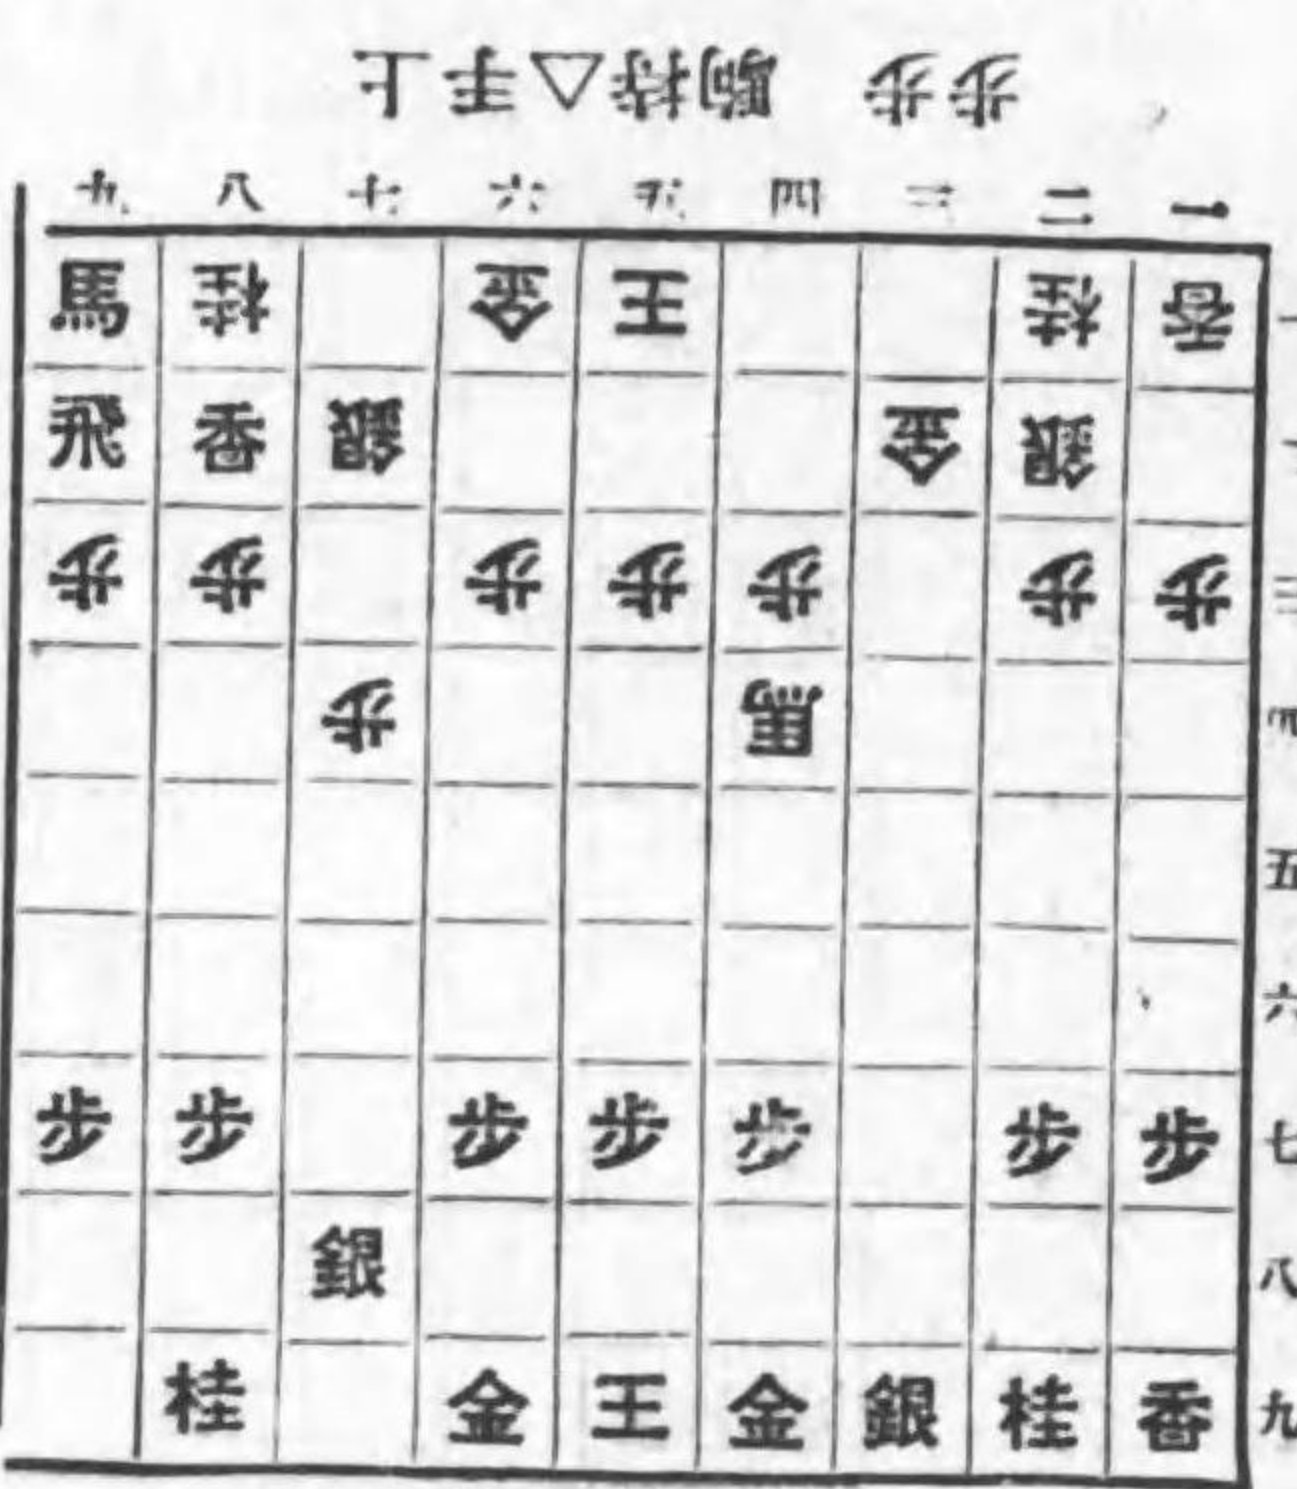 上手△持駒 歩歩
九八七六五四三二一
馬桂金王桂香一
飛香銀金銀
歩歩歩歩歩歩歩三
歩馬四
五
六
歩歩歩歩歩歩歩七
銀八
桂金王金銀桂香九